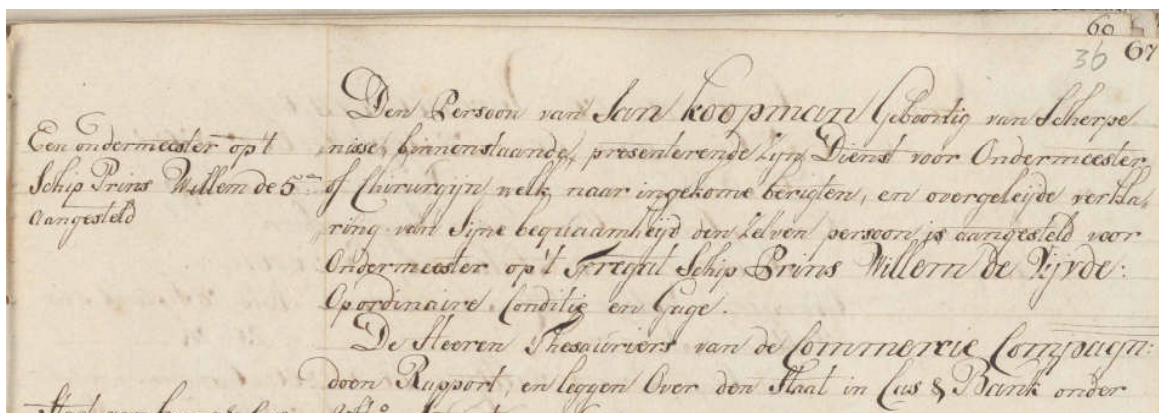 60
36 67
Een ondermeester op't
Schip Prins Willem de 5de
aangesteld
Den Persoon van Jan Koopman Geboortig van Scherpe
nisse, binnenstaande, presenterende zyn Dienst voor Ondermeester
of Chirurgijn, welk naar ingekome berigten, en overgeleijde verkla,
,ring van Sijne bequaamheijd den zelven persoon is aangesteld voor
Ondermeester op't Fregat Schip Prins Willem de Vijvde:
Op ordinaire Conditie en Gage.
De Heeren Thesauriers van de Commercie Compagn:
doen Rapport, en leggen Over den Staat in Cas & Bank onder